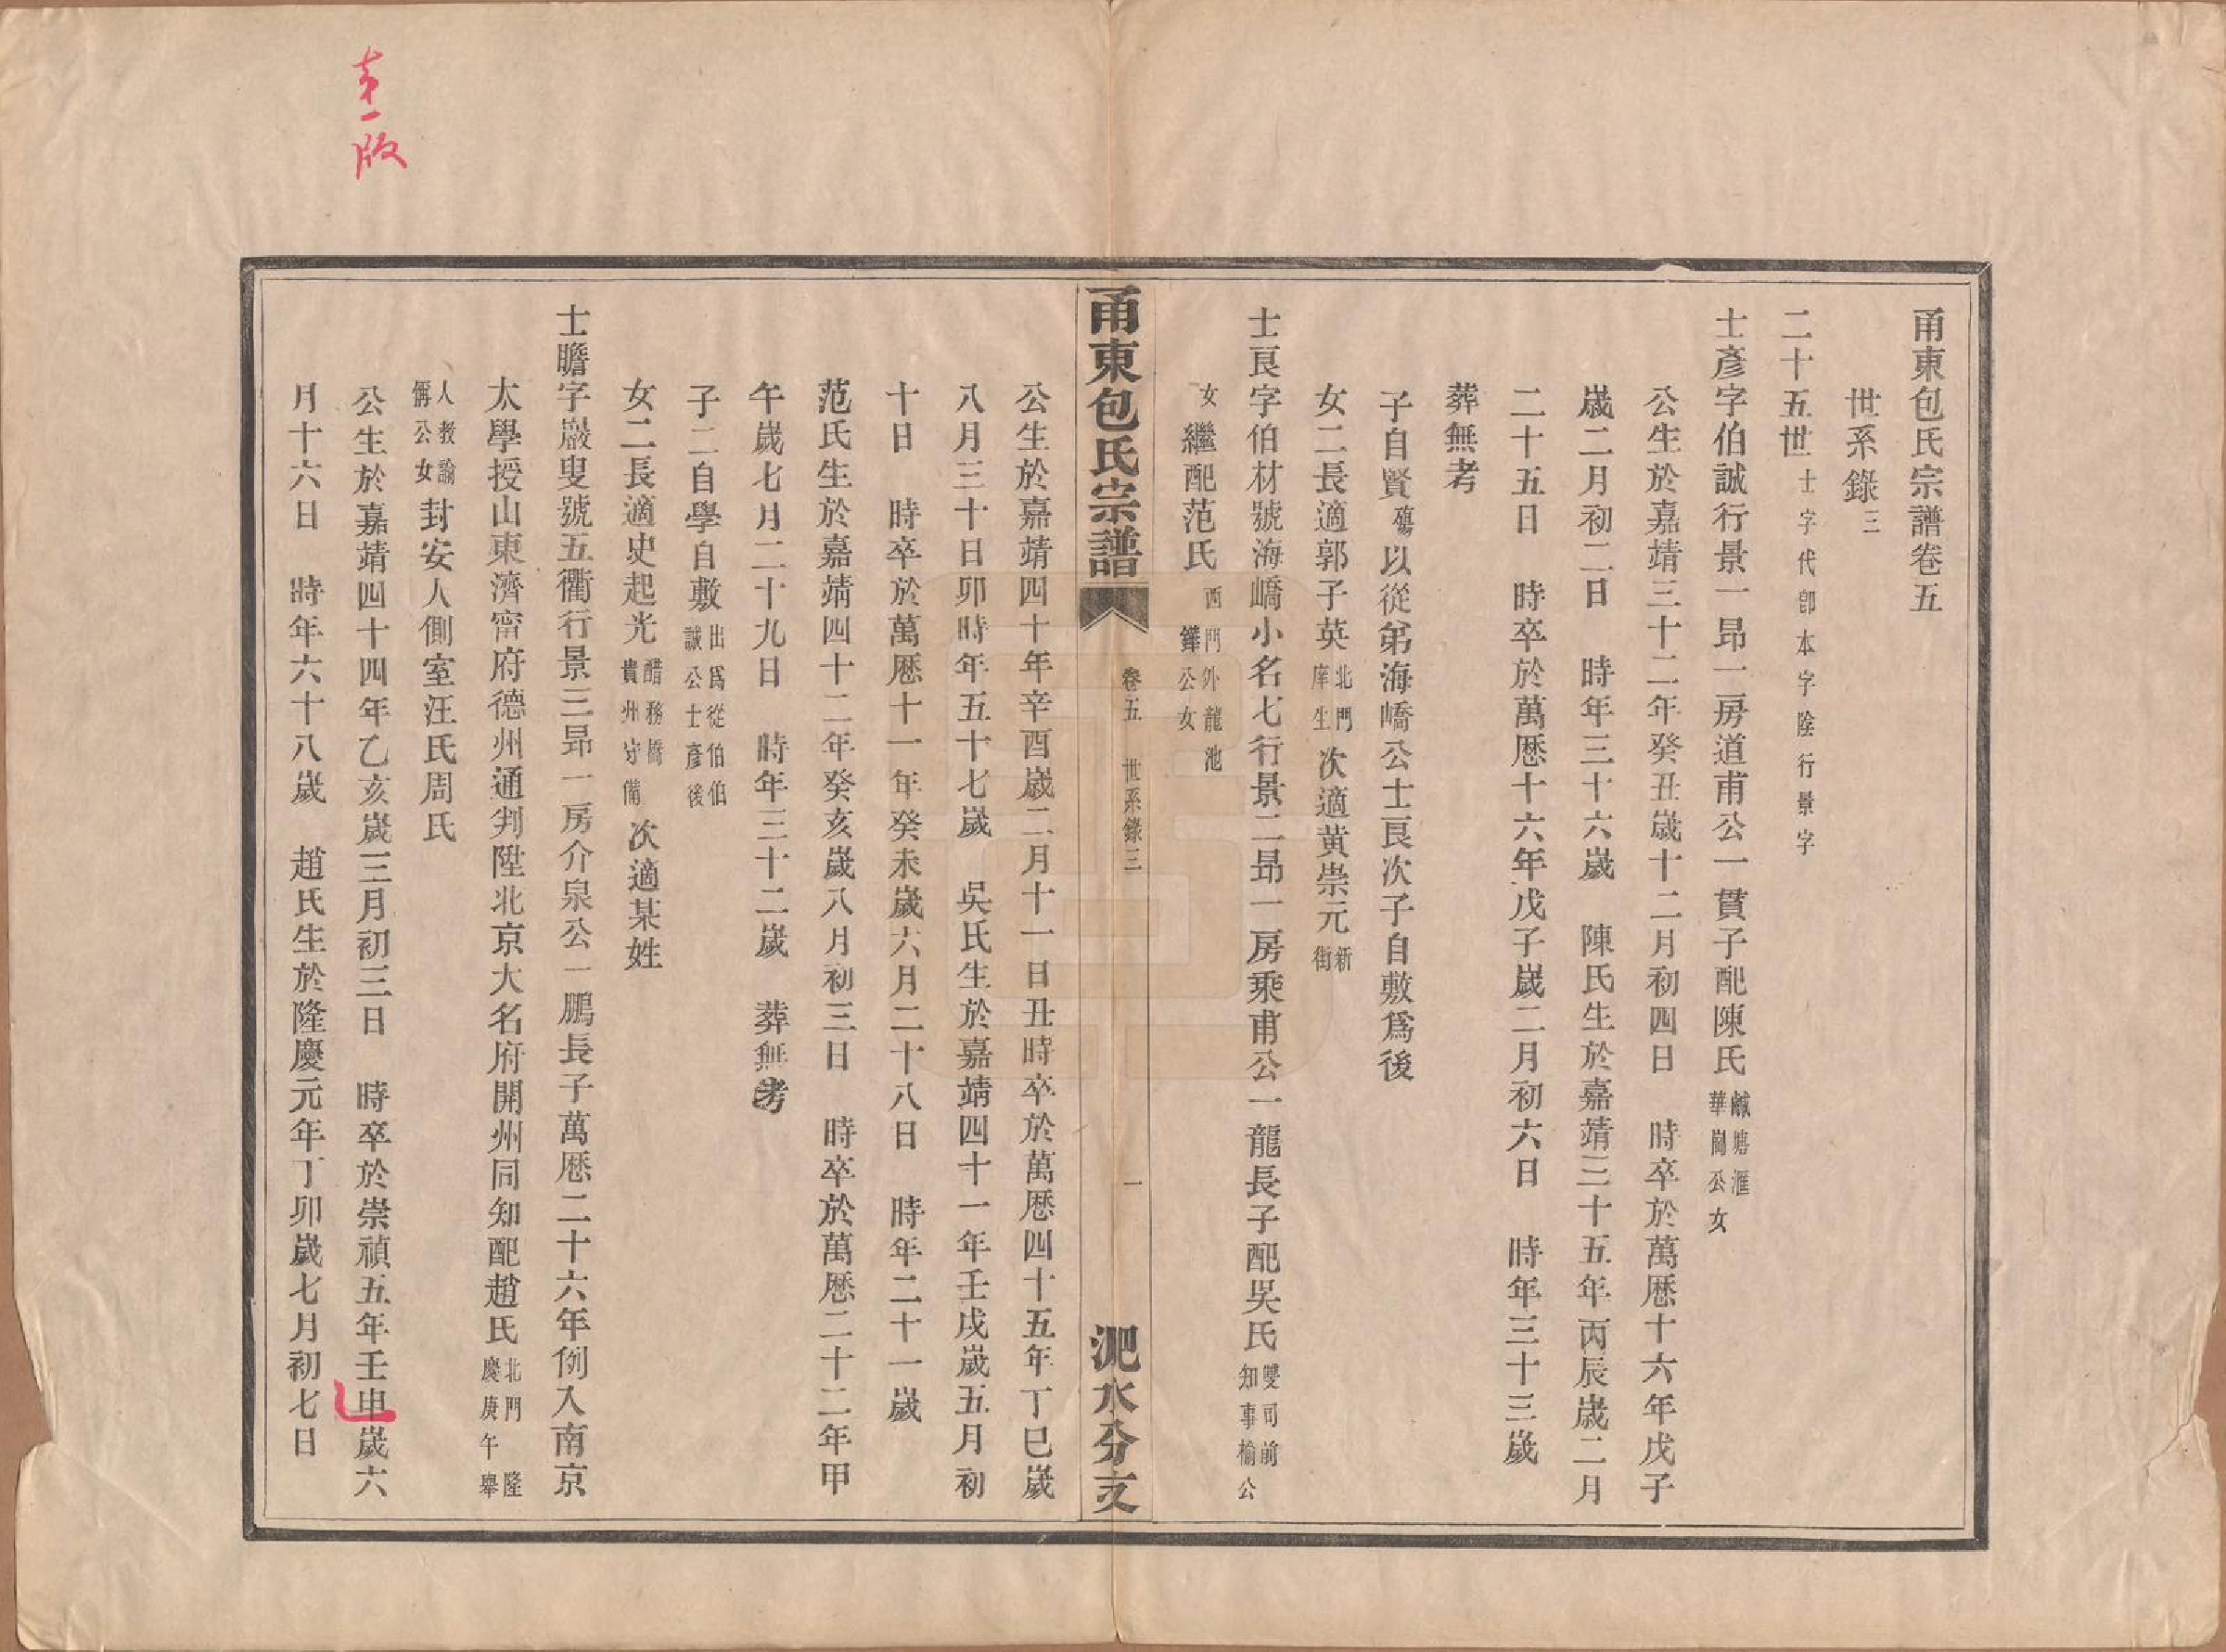 甬東包氏宗譜卷五
世系錄三
二十五世士字代卽本字陰行景字
士彥字伯誠行景一昂一房道甫公一貫子配陳氏鹹塘滙華崗公女
公生於嘉靖三十二年癸丑歲十二月初四日　時卒於萬曆十六年戊子
歲二月初二日　時年三十六歲　陳氏生於嘉靖三十五年丙辰歲二月
二十五日　時卒於萬曆十六年戊子歲二月初六日　時年三十三歲
葬無考
子自賢殤以從弟海嶠公士良次子自敷爲後
女二長適郭子英北門庠生次適黃崇元新街
士良字伯材號海嶠小名七行景二昂一房乘甫公一龍長子配吳氏雙司前知事楡公
女繼配范氏西門外龍池鏵公女
甬東包氏宗譜
卷五　世系錄三
一
淝水分支
公生於嘉靖四十年辛酉歲二月十一日丑時卒於萬曆四十五年丁巳歲
八月三十日卯時年五十七歲　吳氏生於嘉靖四十一年壬戌歲五月初
十日　時卒於萬曆十一年癸未歲六月二十八日　時年二十一歲
范氏生於嘉靖四十二年癸亥歲八月初三日　時卒於萬曆二十二年甲
午歲七月二十九日　時年三十二歲　葬無考
子二自學自敷出爲從伯伯誠公士彥後
女二長適史起光醋務橋貴州守備次適某姓
士瞻字巖叟號五衢行景三昂一房介泉公一鵬長子萬曆二十六年例入南京
太學授山東濟甯府德州通判陞北京大名府開州同知配趙氏北門隆慶庚午舉
人教諭儁公女封安人側室汪氏周氏
公生於嘉靖四十四年乙亥歲三月初三日　時卒於崇禎五年壬申歲六
月十六日　時年六十八歲　趙氏生於隆慶元年丁卯歲七月初七日
第一版